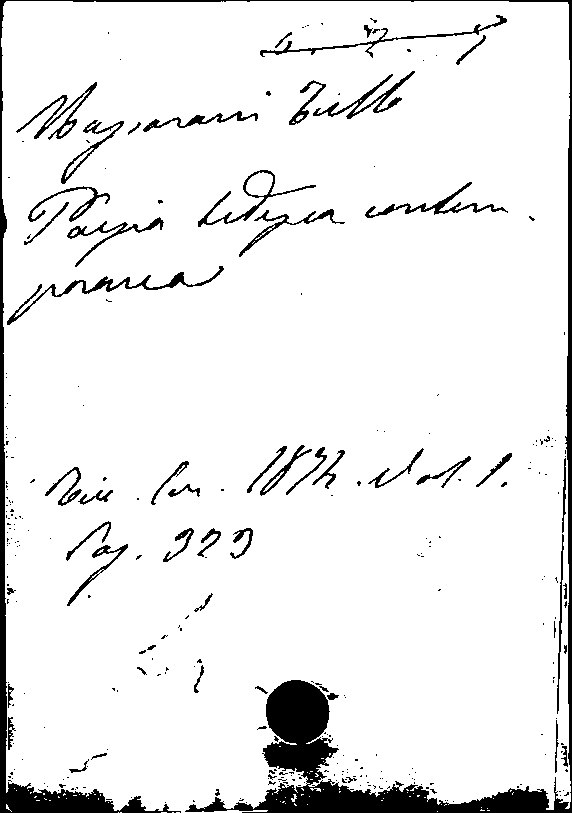 Massarani Tullo
Poesia tedesca contem.
poranea
Riv. Eur. 1872. Vol. 1.
Pag. 323